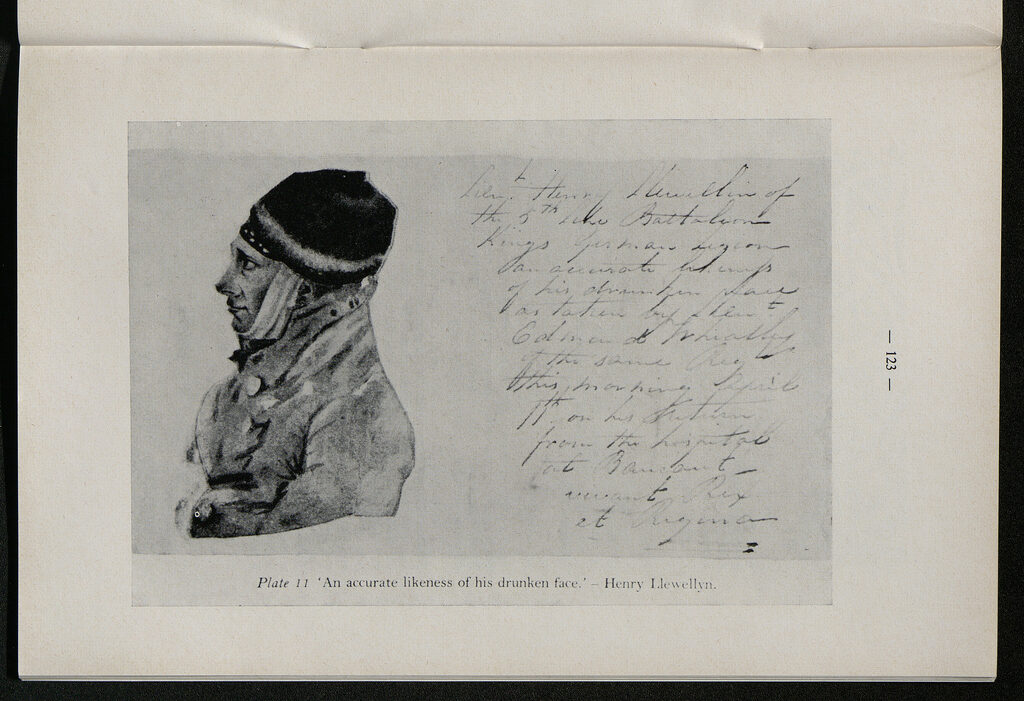 Lieu.t Henry Llewellin of
the 5th line Battalion
Kings German Legion
an accurate likeness
of his drunken face
as taken by Lieu.t
Edmund Whealley
of the same Reg
this morning April
1st on his return
from the hospital
at
vivant Rex
et Regina
Plate 11 'An accurate likeness of his drunken face.' – Henry Llewellyn.
— 123 —